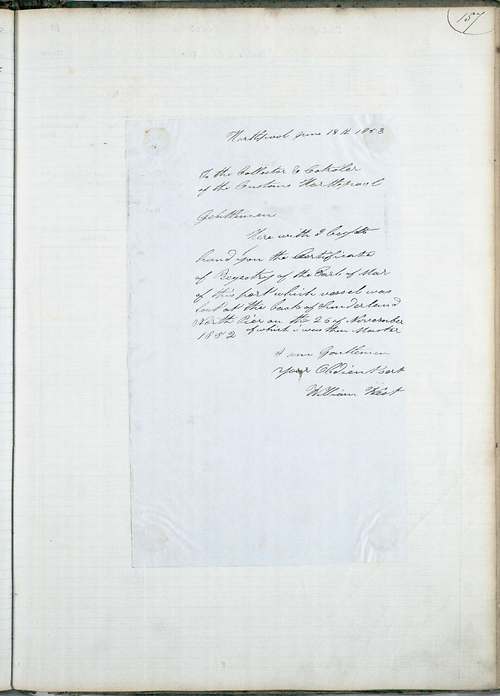 157
Hartlepool June 18th 1853
To the Collector & Cotroler
of the Customs Hartlepool
Gentlemen
Here with I beg to
hand you the Certificate
of Regestry of the Earl of Mar
of this port which vessel was
lost at the back of Sunderland
North Pier on the 26 of November
1852 of which i was then Master
I am Gentlemen
your Obdien Sert
William